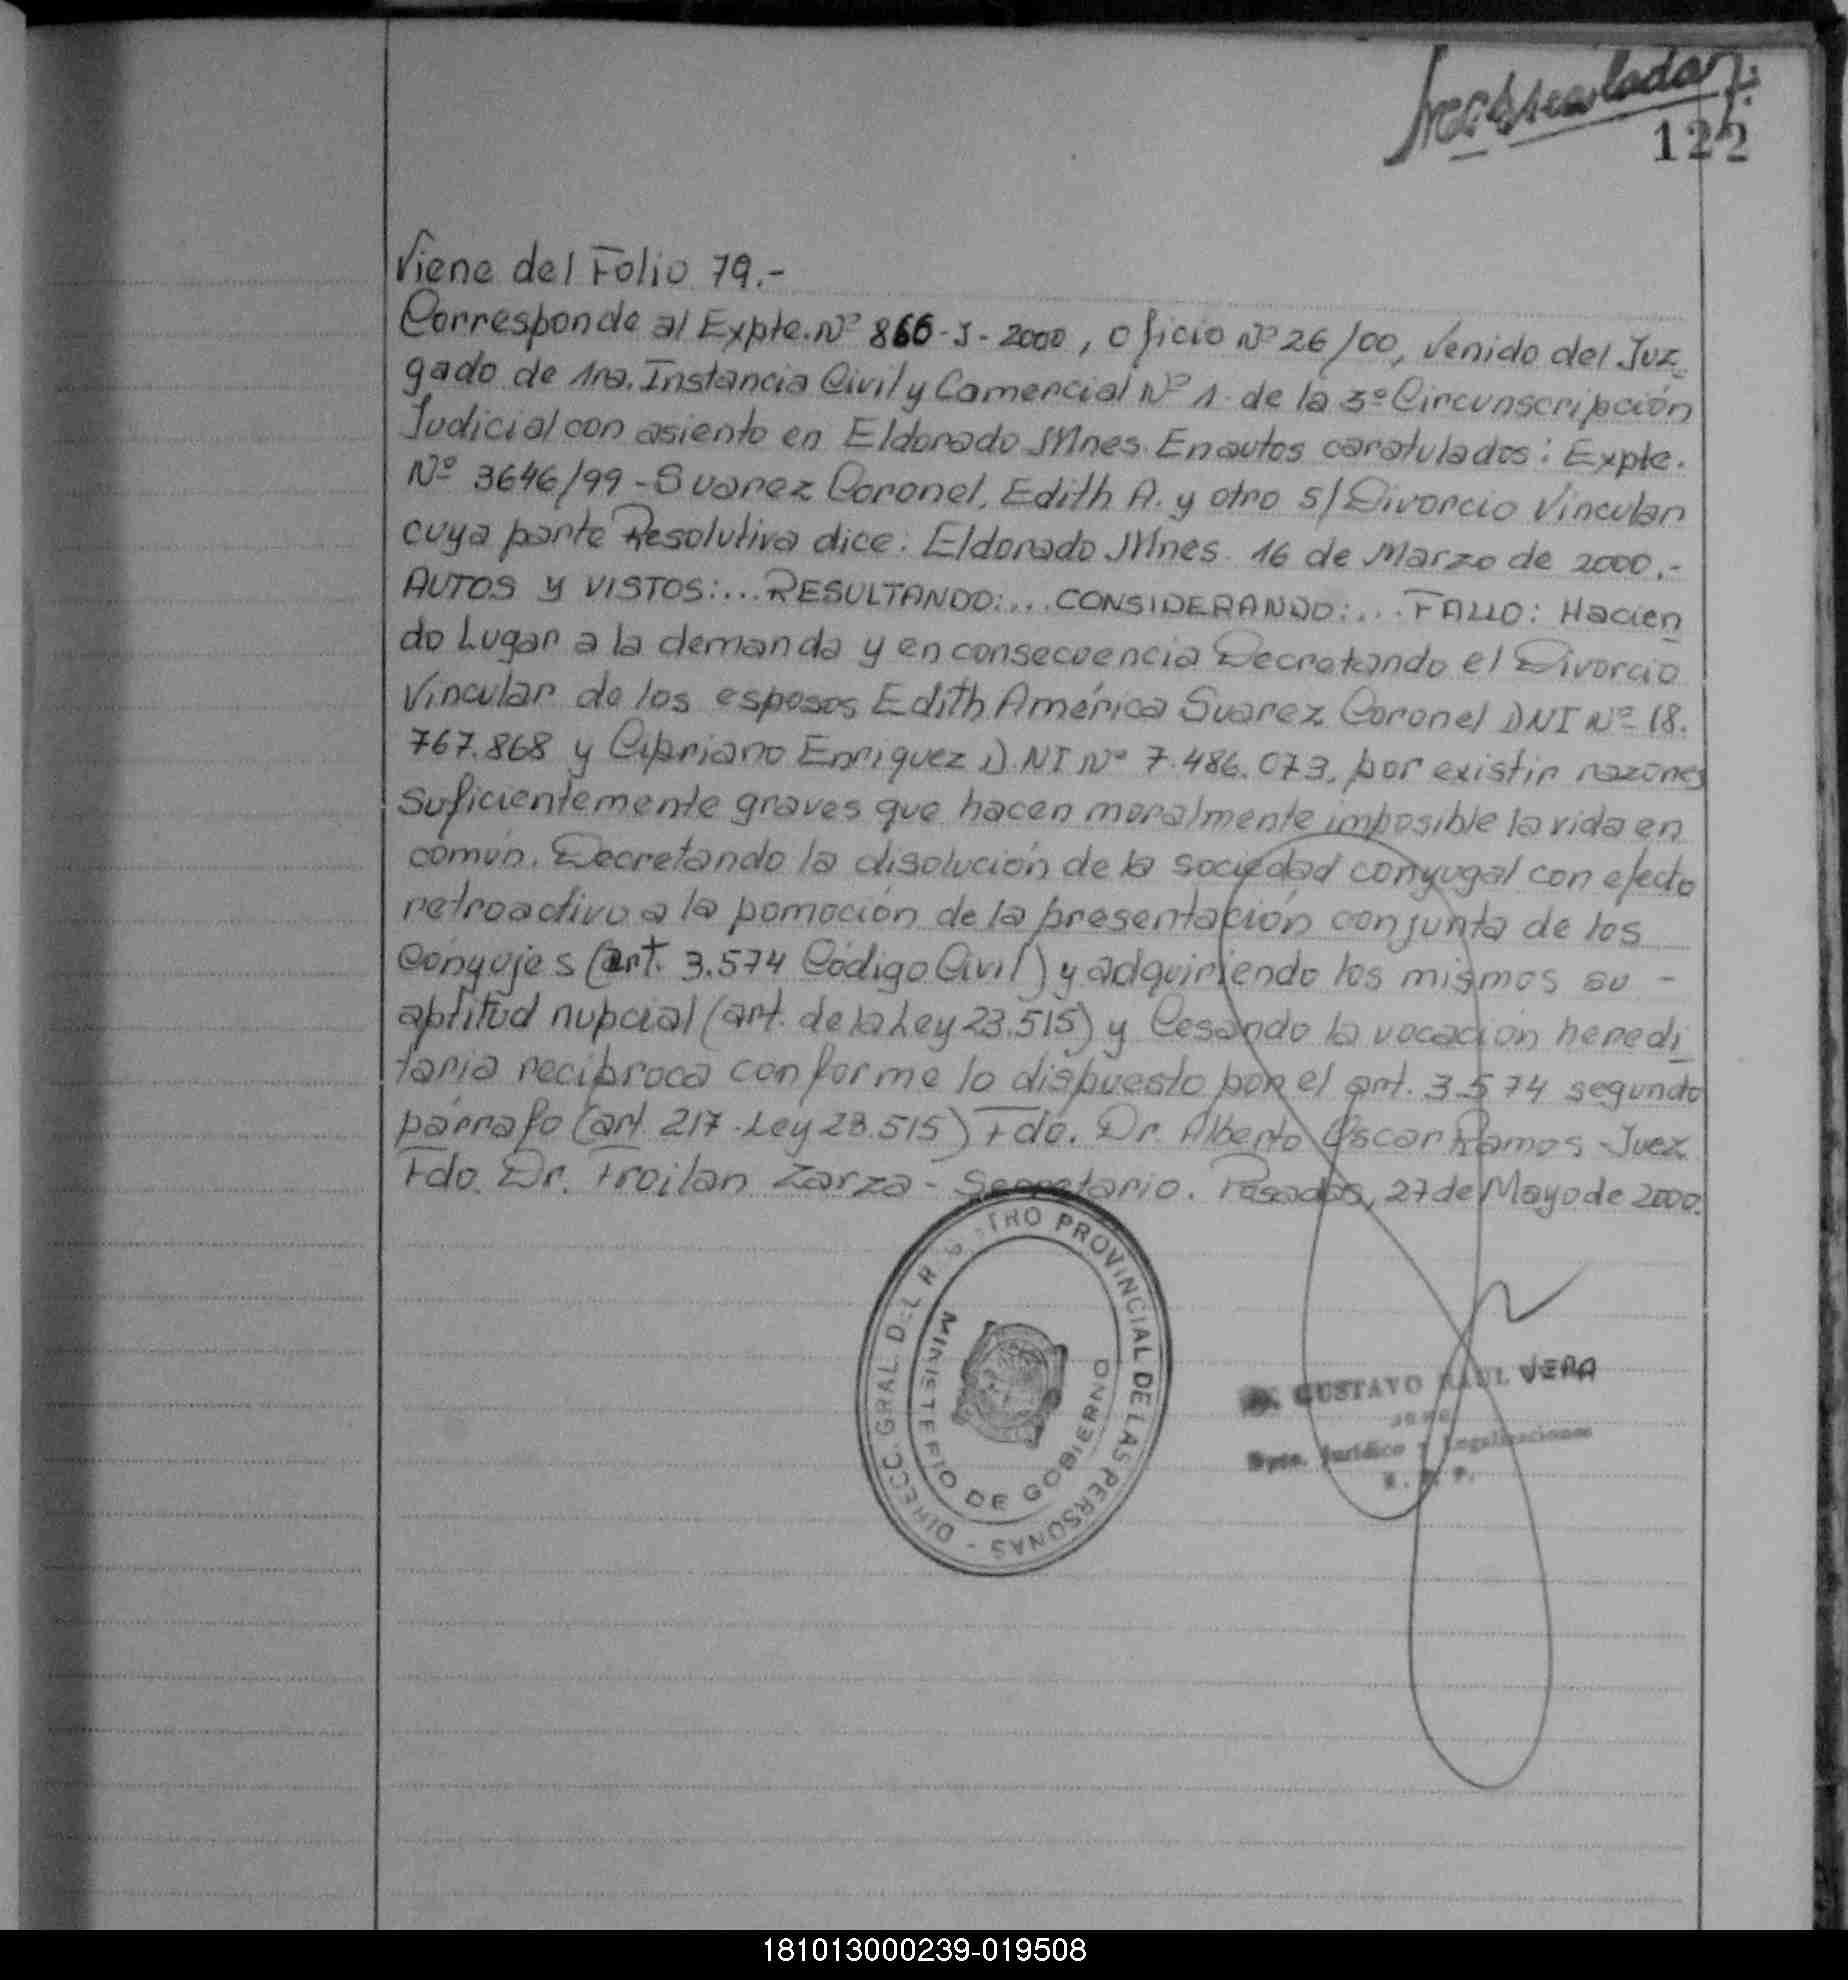 122
Viene del Folio 79.-
Corresponde al Expte. Nº 866-J-2000, oficio Nº 26/00, Venido del Juz
gado de 1ra. Instancia Civil y Comercial Nº 1. de la 3º Circunscripción
Judicial con asiento en Eldorado Mnes. En autos caratulados: Expte.
Nº 3646/99 - Suarez Coronel, Edith A. y otro s/ Divorcio Vincular
cuya parte Resolutiva dice: Eldorado Mnes. 16 de Marzo de 2000.-
AUTOS Y VISTOS:... RESULTANDO:... CONSIDERANDO:... FALLO: Hacien
do Lugar a la demanda y en consecuencia Decretando el Divorcio
Vincular de los esposos Edith América Suarez Coronel DNI Nº 18.
767.868 y Cipriano Enriquez D.NI Nº 7.486.073, por existir razones
suficientemente graves que hacen moralmente imposible la vida en
común. Decretando la disolución de la sociedad conyugal con efecto
retroactivo a la pomoción de la presentación conjunta de los
Cónyujes (art. 3.574 Código Civil) y adquiriendo los mismos su -
aptitud nupcial (art. de la Ley 23.515) y Cesando la vocación heredi
taria recíproca conforme lo dispuesto por el art. 3.574 segundo
párrafo (art. 217 - Ley 23.515) Fdo. Dr. Alberto Oscar Ramos - Juez
Fdo. Dr. Froilan Zarza - Secretario. Posadas, 27 de Mayo de 2000.
DIRECC. GRAL. DEL REGISTRO PROVINCIAL DE LAS PERSONAS -
MINISTERIO DE GOBIERNO
GUSTAVO RAUL VERA
JEFE
Dpto. Jurídico y Legalizaciones
R. P. P.
181013000239-019508